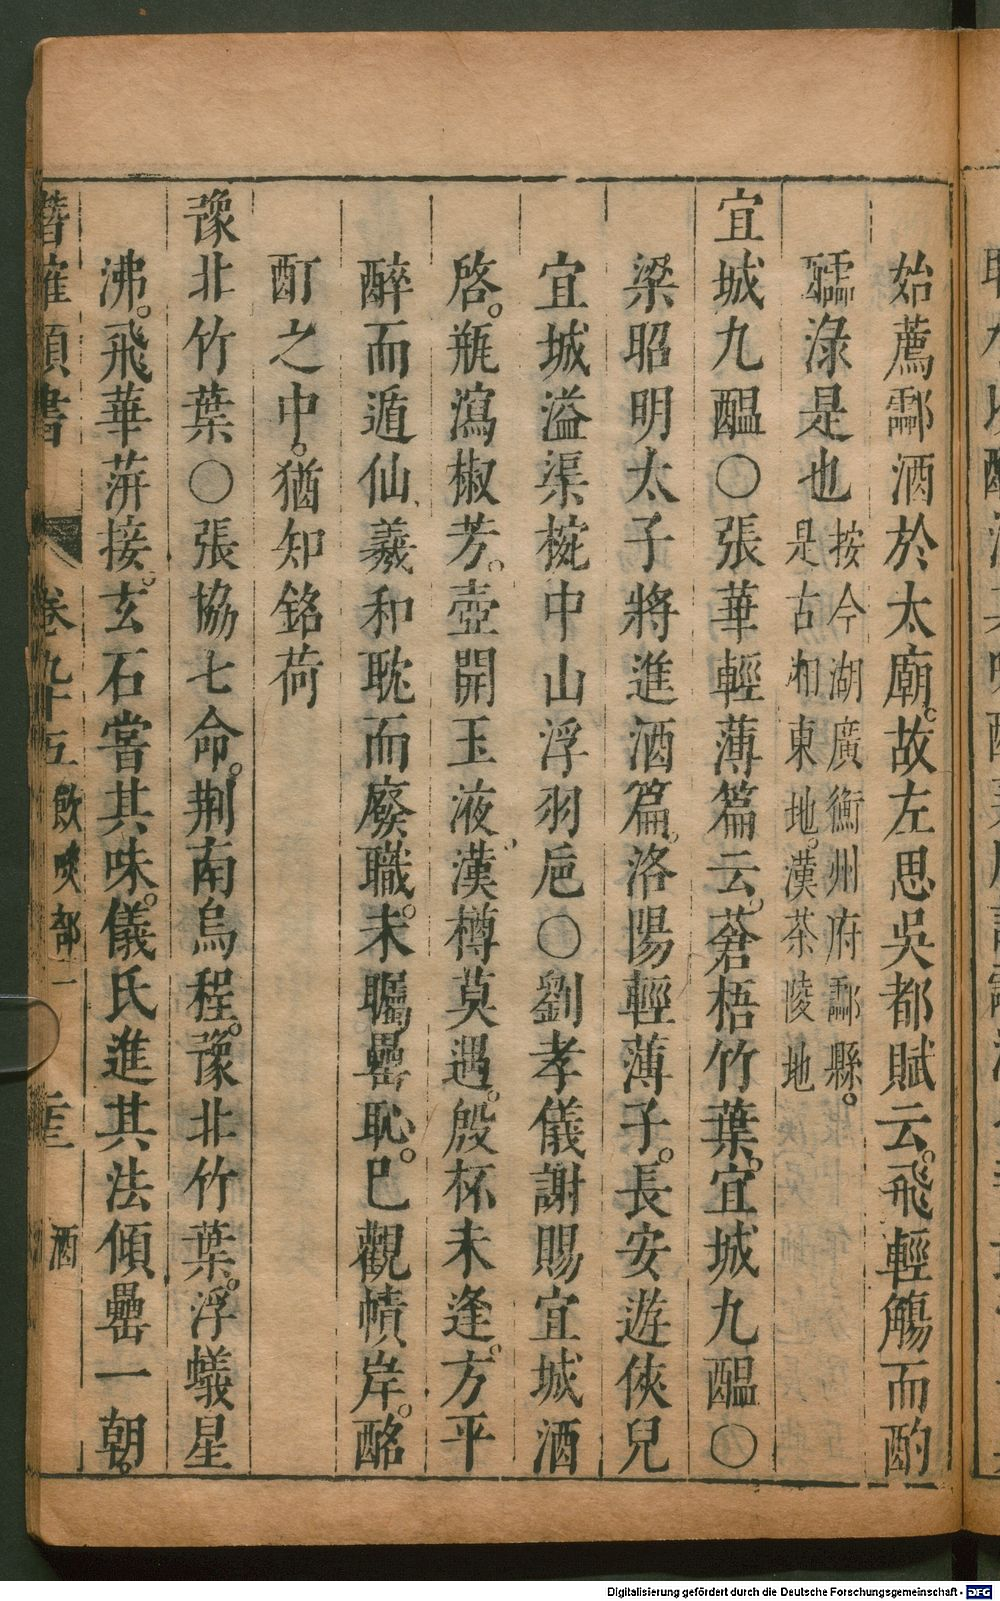 始薦酃酒於太廟。故左思吳都賦云。飛輕觴而酌
醽淥是也
按今湖廣衡州府酃縣。
是古湘東地。漢茶陵地
宜城九醞〇張華輕薄篇云。蒼梧竹葉。宜城九醞〇
梁昭明太子將進酒篇。洛陽輕薄子。長安遊俠兒
宜城溢渠椀中山浮羽巵〇劉孝儀謝賜宜城酒
啓。瓶瀉椒芳。壺開玉液。漢樽莫遇。殷杯未逢。方平
醉而遁仙。羲和耽而廢職。未矚罍恥。巳觀幘岸。酩
酊之中。猶知銘荷
豫北竹葉〇張協七命。荆南烏程。豫北竹葉。浮蟻星
沸。飛華蓱接。玄石嘗其味。儀氏進其法傾罍一朝。
潛確類書
卷九十五
飲啖部二
酒
Digitalisierung gefördert durch die Deutsche Forschungsgemeinschaft - DFG